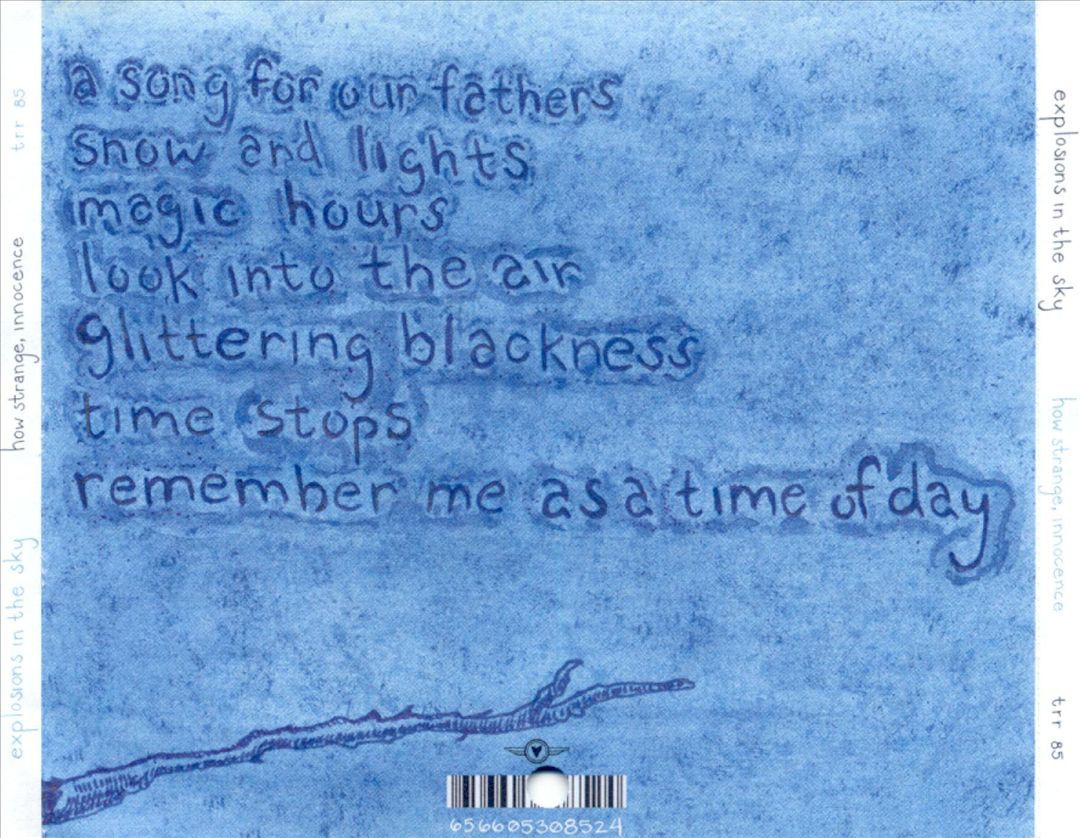 a song for our fathers
snow and lights
magic hours
look into the air
glittering blackness
time stops
remember me as a time of day
656605308524
explosions in the sky
how strange, innocence
trr 85
explosions in the sky
how strange, innocence
trr 85